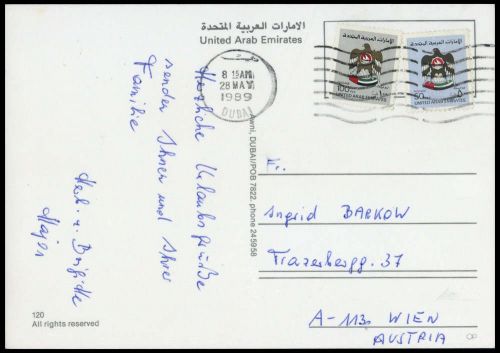 الامارات العربية المتحدة
United Arab Emirates
8 15AM
28 MAY
1989
DUBAI
الامارات العربية المتحدة
100
UNITED ARAB EMIRATES
الامارات العربية المتحدة
50
UNITED ARAB EMIRATES
Herzliche Urlaubsgrüße
senden Ihnen und Ihrer
Familie
u. Brigitte
Majer
DUBAI/POB 7822, phone 245958
Fr.
Ingrid BARKOW
Trazerbergg. 37
A-113 WIEN
AUSTRIA
120
All rights reserved